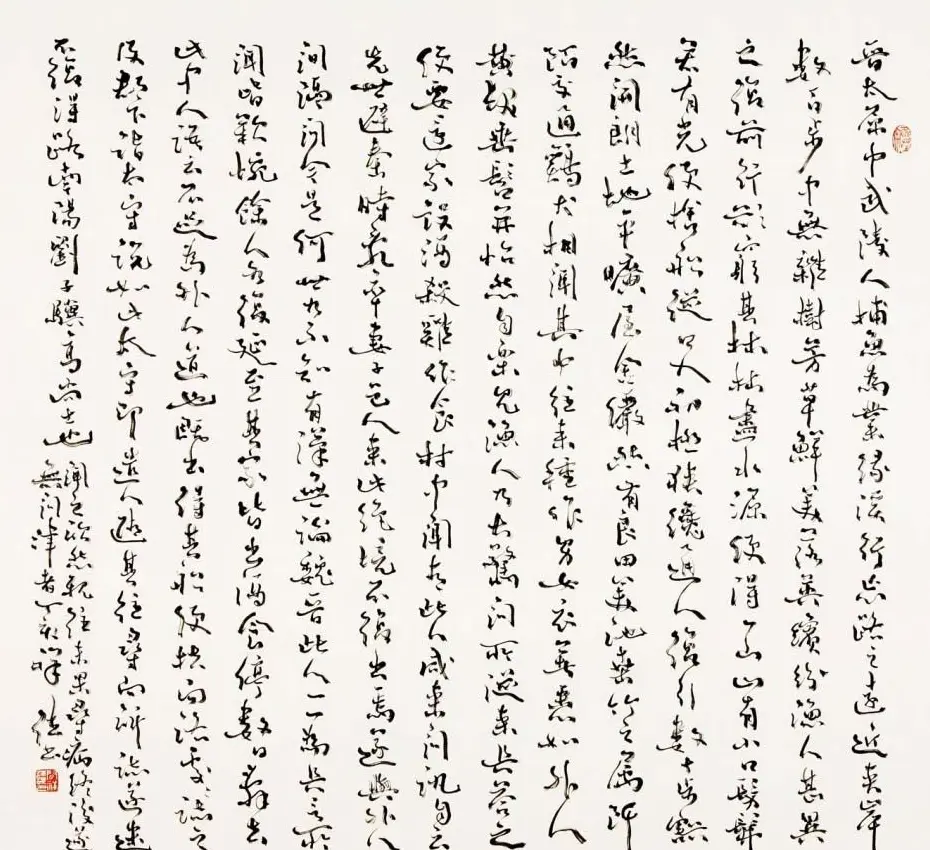 晉太原中武陵人捕魚為業緣溪行忘路之遠近夾岸
數百步中無雜樹芳草鮮美落英繽紛漁人甚異
之復前行欲窮其林林盡水源便得一山山有小口髣髴
若有光便捨船從口入初極狹纔通人復行數十步豁
然開朗土地平曠屋舍儼然有良田美池桑竹之屬阡
陌交通雞犬相聞其中往來種作男女衣著悉如外人
黃髮垂髫並怡然自樂見漁人乃大驚問所從來具答之
便要還家設酒殺雞作食村中聞有此人咸來問訊自云
先世避秦時亂率妻子邑人來此絕境不復出焉遂與外人
間隔問今是何世乃不知有漢無論魏晉此人一一為具言所
聞皆歎惋餘人各復延至其家皆出酒食停數日辭去
此中人語云不足為外人道也既出得其船便扶向路處處誌之
及郡下詣太守說如此太守即遣人隨其往尋向所誌遂迷
不復得路南陽劉子驥高尚士也
聞之欣然規往未果尋病終後遂
無問津者